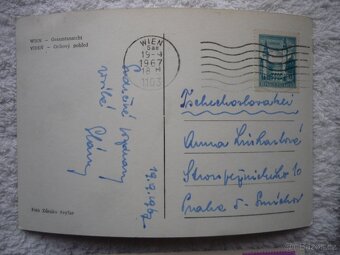 WIEN - Gesamtansicht
VIDEŇ - Celkový pohled
WIEN
19-4
1967
18
1103
Srdečné pozdravy
Hány
19.4.1967
Tschechoslovakei
Anna
Stroupežnického 10
Praha 5 - Smíchov
Foto Zdenko Feyfar